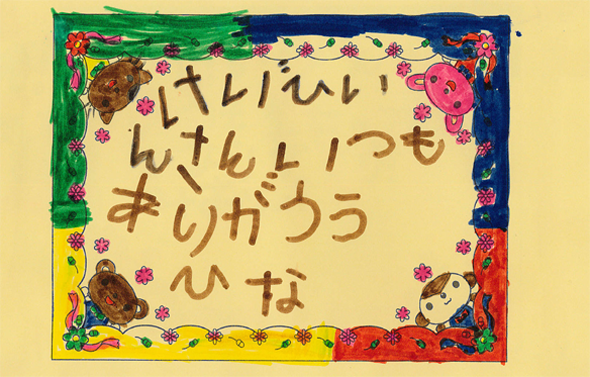 けいびい
んさんいつも
ありがうう
ひな